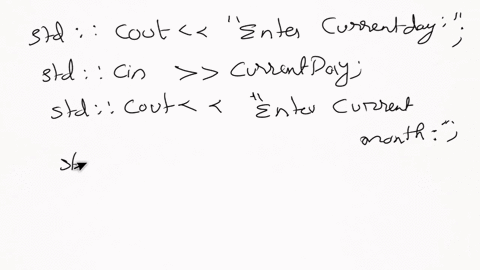 std :: cout << "Enter Currentday:";
std :: Cin >> CurrentDay;
std :: Cout << "Enter Current
month:";
st